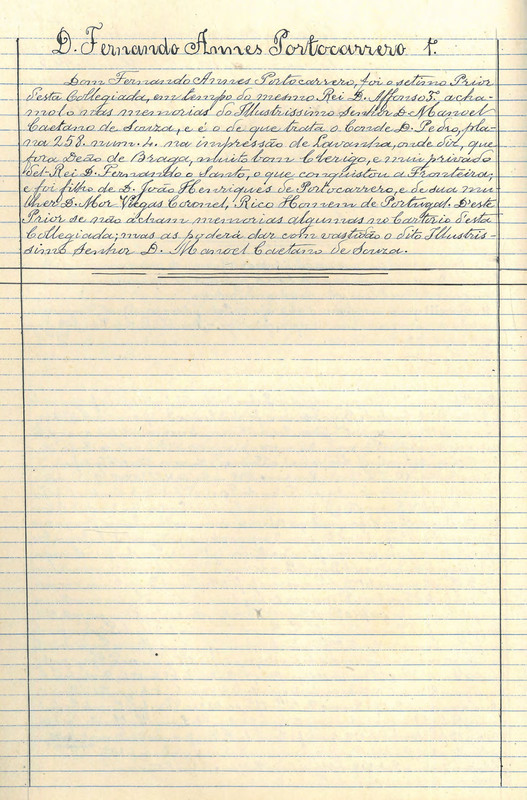 D. Fernando Annes Portocarrero 7.
Dom Fernando Annes Portocarrero, foi o setimo Prior
desta Collegiada, em tempo do mesmo Rei D. Affonso 3º, acha-
mol'o nas memorias do Illustrissimo Senhor D. Manoel
Caetano de Souza, e é o de que trata o Conde D. Pedro, pla-
na 258. num. 4. na impressão de Lavanha, onde diz, que
fora Deão de Braga, muito bom Clerigo, e mui privado
del-Rei D. Fernando o Santo, o que conquistou a Fronteira;
e foi filho de D. João Henriques de Portocarrero, e de sua mu-
lher D. Mor Viegas Coronel, Rico Homem de Portugal. D'este
Prior se não acham memorias algumas no Cartorio d'esta
Collegiada; mas as poderá dar com vastidão o dito Illustris-
simo Senhor D. Manoel Caetano de Souza.